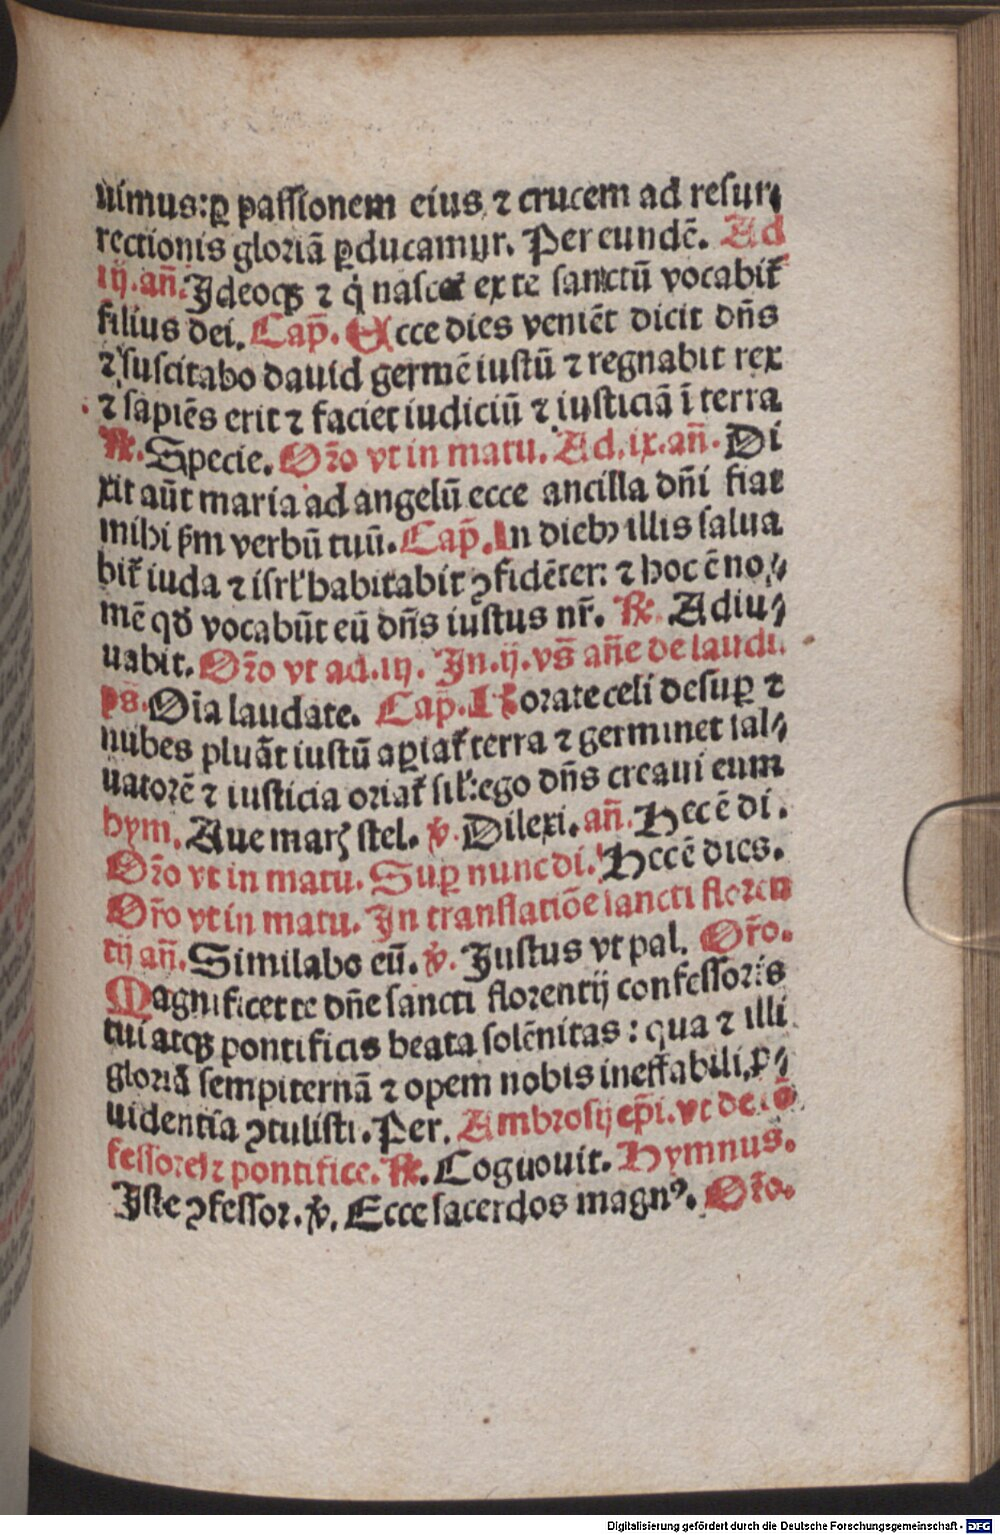 uimus:ꝑ passionem eius ⁊ crucem ad resur⸗
rectionis gloriā ꝑducamur. Per eundē. Ad
iij. an̄. Ideoqꝫ ⁊ q̇ nascet᷑ ex te sanctū vocabit᷑
filius dei. Cap̄. Ecce dies veniēt dicit dn̄s
⁊ suscitabo dauid germē iustū ⁊ regnabit rex
⁊ sapiēs erit ⁊ faciet iudiciū ⁊ iusticiā ī terra
℟. Specie. Or̄o vt in matu. Ad. ix. an̄. Di
xit aūt maria ad angelū ecce ancilla dn̄i fiat
mihi ẜm verbū tuū. Cap̄. In diebꝰ illis salua
bit᷑ iuda ⁊ isrl̓ habitabit ꝯfidēter: ⁊ hoc ē no⸗
mē qđ vocabūt eū dn̄s iustus nr̄. ℟. Adiu⸗
uabit. Or̄o vt ad. iij. In. ij. vs̄ an̄e de laudi.
ps̄. Oīa laudate. Cap̄. Rorate celi desuꝑ ⁊
nubes pluāt iustū aꝑiat᷑ terra ⁊ germinet sal⸗
uatorē ⁊ iusticia oriat᷑ sil̓: ego dn̄s creaui eum
hym. Aue marꝭ stel. ℣. Dilexi. an̄. Hec ē di.
Or̄o vt in matu. Suꝑ nunc di. Hec ē dies.
Or̄o vt in matu. In translatiōe sancti floren
tij an̄. Similabo eū. ℣. Iustus vt pal. Or̄o.
Magnificet te dn̄e sancti florentij confessoris
tui atqꝫ pontificis beata solēnitas: qua ⁊ illi
gloriā sempiternā ⁊ opem nobis ineffabili ꝓ⸗
uidentia ꝯtulisti. Per. Ambrosij ep̄i. vt de cō
fessore ⁊ pontifice. ℟. Cognouit. Hymnus.
Iste ꝯfessor. ℣. Ecce sacerdos magnꝰ. Or̄o.
Digitalisierung gefördert durch die Deutsche Forschungsgemeinschaft - DFG